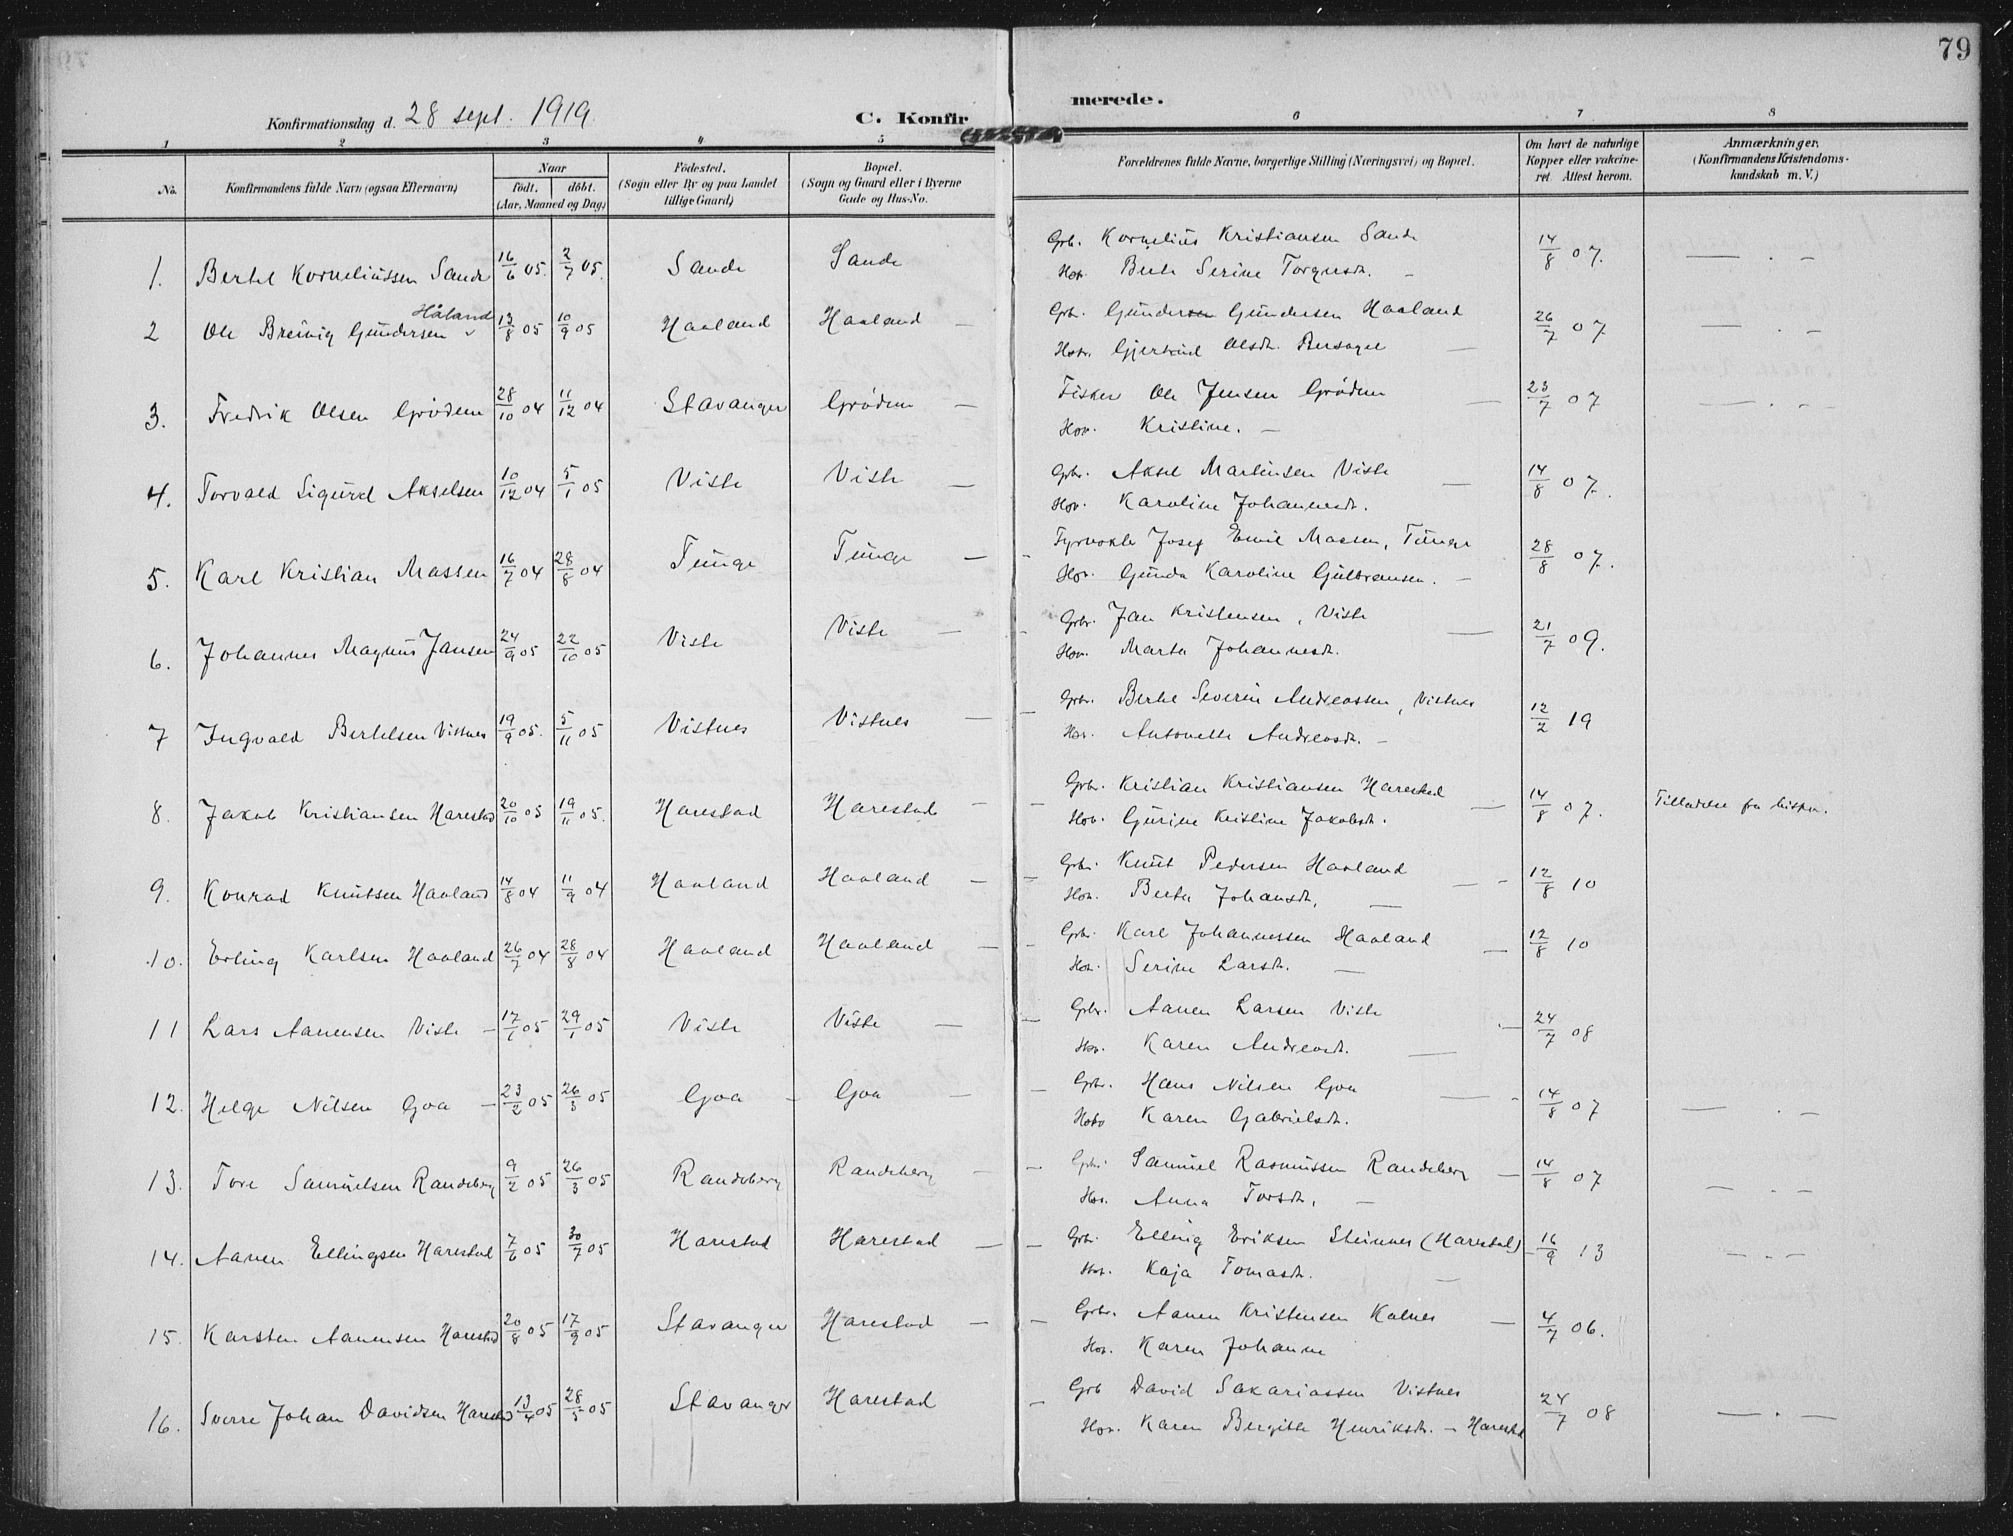 79
Konfirmationsdag d. 28 sept. 1919.
C. Konfirmerede.
1 2 3 4 5 6 7 8
No.
Konfirmandens fulde Navn (ogsaa Efternavn)
Naar
født. døbt.
(Aar, Maaned og Dag)
Fødested.
(Sogn eller By og paa Landet
tillige Gaard)
Bopæl.
(Sogn og Gaard eller i Byerne
Gade og Hus-No.
Forældrenes fulde Navne, borgerlige Stilling (Næringsvei) og Bopæl.
Om havt de naturlige
Kopper eller vakcine-
ret. Attest herom.
Anmærkninger.
(Konfirmandens Kristendoms-
kundskab m. V.)
Grb. Kornelius Kristiansen Sande
1. Bertel Korneliussen Sande 16/6 05. 2/7 05. Sande Sande 14/8 07. — . —
Hov. Berte Serine Torgersdt. —
Håland
Grb. Gunder Gundersen Haaland
2 Ole Breivig Gundersen 13/8 05 10/9 05 Haaland Haaland — 26/7 07 — . —
Hov. Gjertrud Olsdt. —
3. Fredrik Olsen Grødem 28/10 04 11/12 04 Stavanger Grødem — Fisker Ole Jensen Grødem — 23/7 07 — . —
Hov. Kristine. —
4. Torvald Sigurd Akselsen 10/12 04 5/1 05 Viste Viste — Grb. Aksel Martinsen Viste — 14/8 07.
Hov. Karoline Johannesdt.
5. Karl Kristian Massen 16/7 04 28/8 04 Tunge Tunge — Fyrvokter Josef Emil Massen, Tunge 28/8 07.
Hov. Gunda Karoline Gulbransen. —
6. Johannes Magnus Jansen 24/9 05 22/10 05 Viste Viste — Grbr. Jan Kristensen, Viste — 21/7 09.
Hov. Marta Johannesdt.
7 Ingvald Bertelsen Vistnes 19/9 05. 5/11 05 Vistnes Vistnes — Grbr. Bertel Severin Andreassen, Vistnes 12/2 19
Hov. Antonette Andreasdt. —
8. Jakob Kristiansen Harestad 20/10 05 19/11 05. Harestad Harestad — Grbr. Kristian Kristiansen Harestad — 14/8 07. Tilladelse fra bispen.
Hov. Gurine Kristine Jakobsdt.
9. Konrad Knutsen Haaland 14/8 04 11/9 04 Haaland Haaland — Grbr. Knut Pedersen Haaland — 12/8 10
Hov. Berta Johansdt. —
10. Erling Karlsen Haaland 26/7 04 28/8 04 Haaland Haaland — Grbr. Karl Johannessen Haaland — 12/8 10
Hov. Serine Larsdt. —
11 Lars Aanensen Viste — 17/1 05 29/1 05 Viste Viste — Grbr. Aanen Larsen Viste — 24/7 08
Hov. Karen Andreasdt. —
12. Helge Nilsen Goa — 23/2 05 26/3 05 Goa — Goa — Grbr. Hans Nilsen Goa — 14/8 07 — . —
Hov. Karen Gabrielsdt.
13. Tore Samuelsen Randeberg 9/2 05 26/3 05 Randeberg Randeberg — Grbr. Samuel Rasmussen Randeberg — 14/8 07 — . —
Hov. Anna Torsdt. —
14. Aanen Ellingsen Harestad 7/6 05 30/7 05 Harestad Harestad — Grbr. Elling Eriksen Steinnes (Harestad) 16/9 13 — . —
Hov. Kaja Tomasdt. —
15. Karsten Aanensen Harestad 20/8 05 17/9 05 Stavanger Harestad — Grbr. Aanen Kristensen Kalnes — 4/7 06.
Hov. Karen Johanne
16. Sverre Johan Davidsen Harestad 13/4 05 28/5 05 Stavanger Harestad — Grb David Sakariassen Vistnes 24/7 08 — . —
Hov. Karen Bergitte Henriksdt. — Harestad